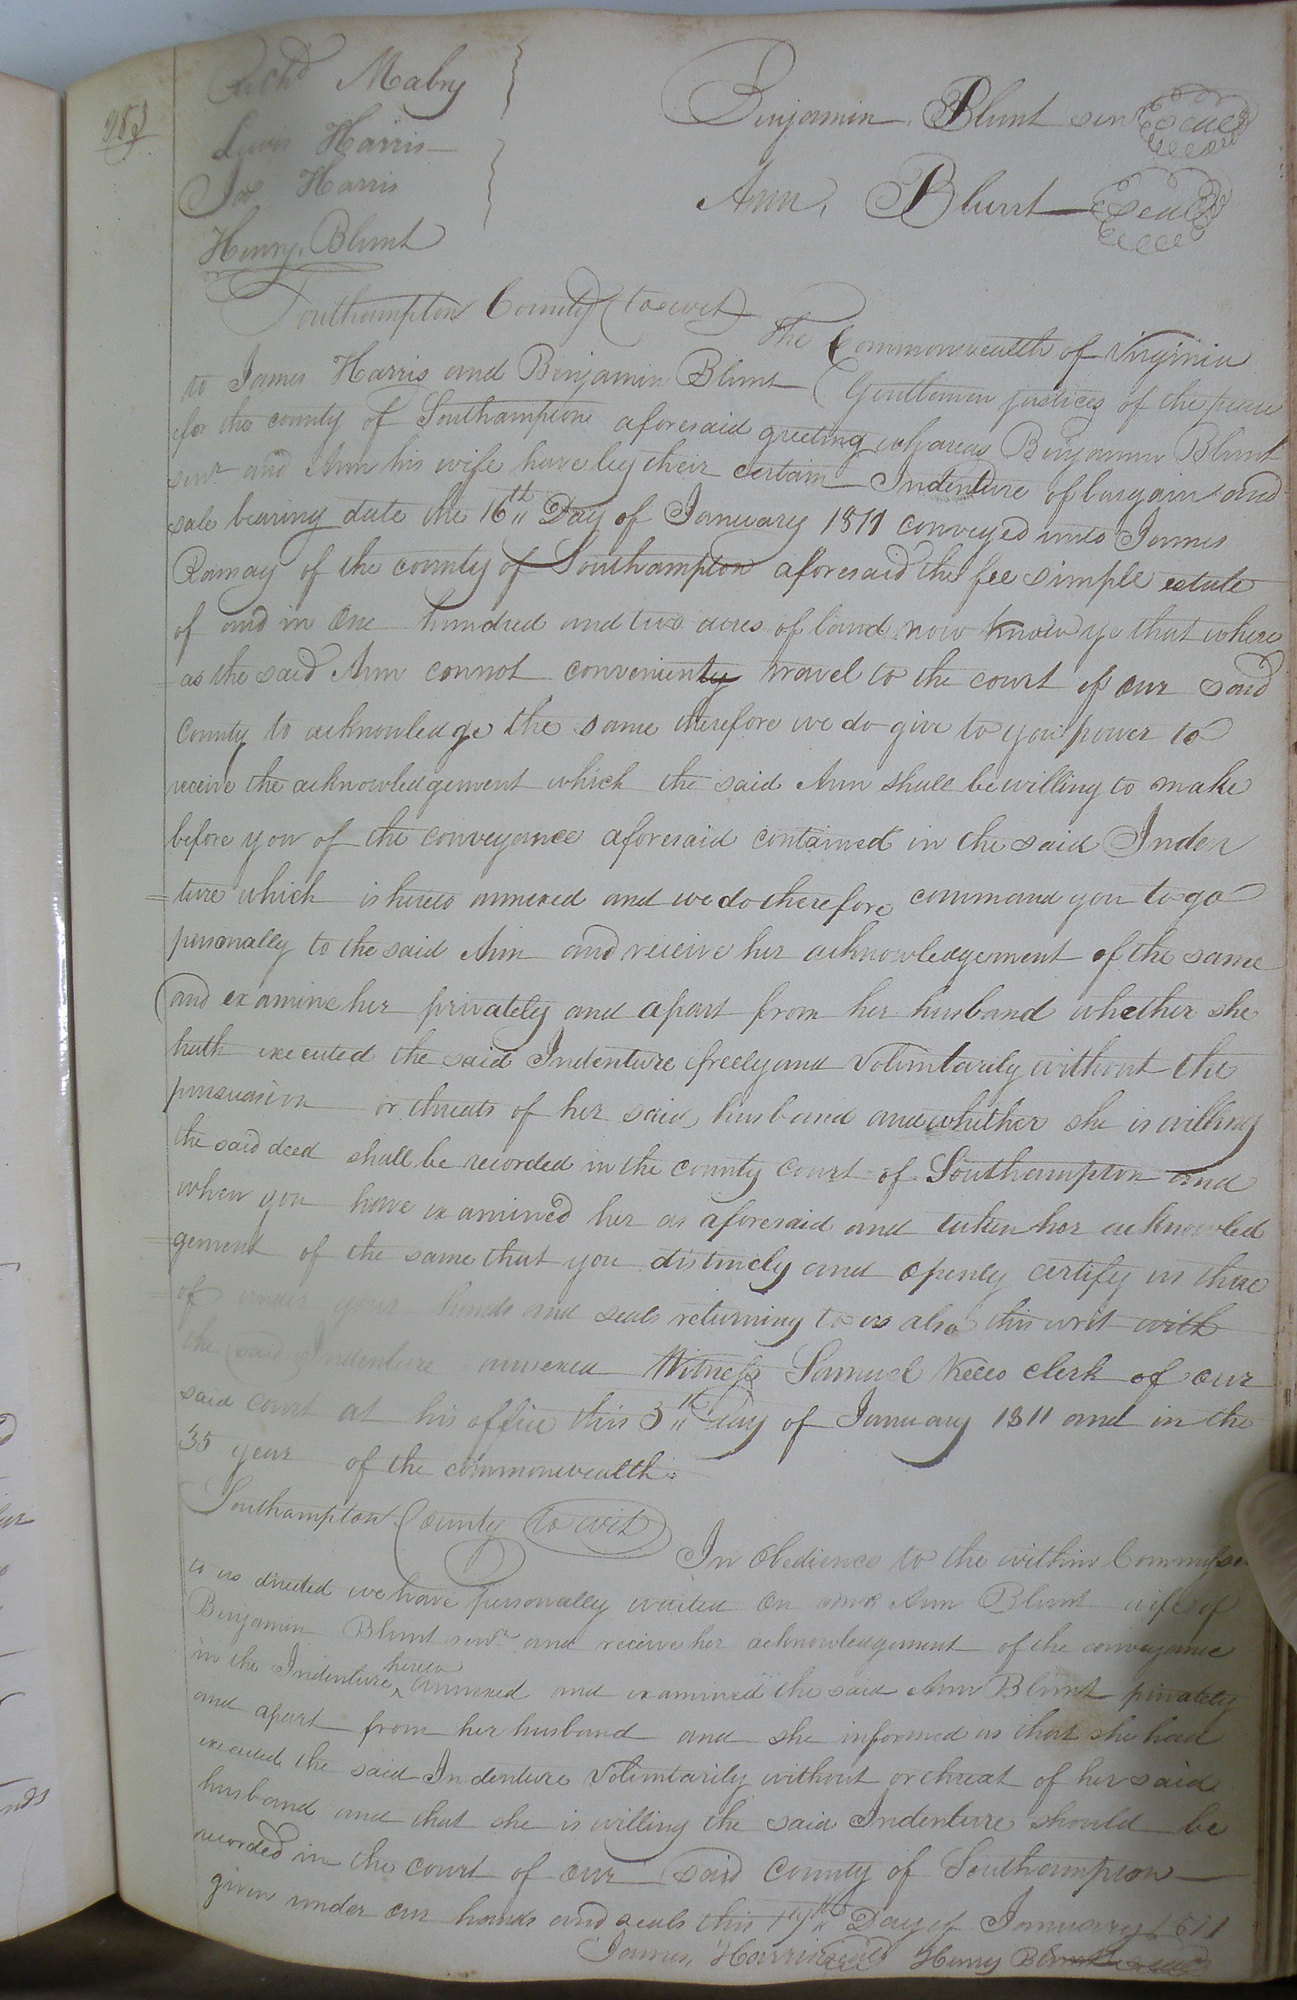 283
Richd Mabry
Benjamin Blunt senr Seal
Lewis Harris
Jas Harris
Ann Blunt Seal
Henry Blunt
Southampton County (to wit)
The Commonwealth of Virginia
to James Harris and Benjamin Blunt Gentlemen justices of the peace
for the county of Southampton aforesaid greeting whereas Benjamin Blunt
senr and Ann his wife have by their certain Indenture of bargain and
sale bearing date the 16th Day of January 1811 conveyed unto James
Ramay of the county of Southampton aforesaid the fee simple estate
of and in One hundred and two acres of land now know ye that where
as the said Ann connot conveniently travel to the court of our said
County to acknowledge the same therefore we do give to you power to
receive the acknowledgement which the said Ann shall be willing to make
before you of the conveyance aforesaid contained in the said Inden
=ture which is hereto annexed and we do therefore command you to go
personally to the said Ann and receive her acknowledgement of the same
and examine her privately and apart from her husband whether she
hath executed the said Indenture freely and Voluntarily without the
persuasion or threats of her said husband and whether she is willing
the said deed shall be recorded in the county court of Southampton and
when you have examined her as aforesaid and taken her acknowled
gement of the same that you distincly and openly certify us there
of under your hands and seals returning to us also this writ with
the said Indenture annexed Witness Samuel Kello clerk of our
said court at his office this 3th Day of January 1811 and in the
35 year of the commonwealth
Southampton County to wit
In Obedience to the within Commission
to us directed we have personally waited on Ann Blunt wife of
Benjamin Blunt senr and receive her acknowledgement of the conveyance
in the Indenture hereto annexed and examined the said Ann Blunt privately
and apart from her husband and she informed us that she had
executed the said Indenture Voluntarily without or threat of her said
husband and that she is willing the said Indenture should be
recorded in the court of our said County of Southampton
given under our hands and seals this 19th Day of January 1811
James Harris seal Henry Blunt seal